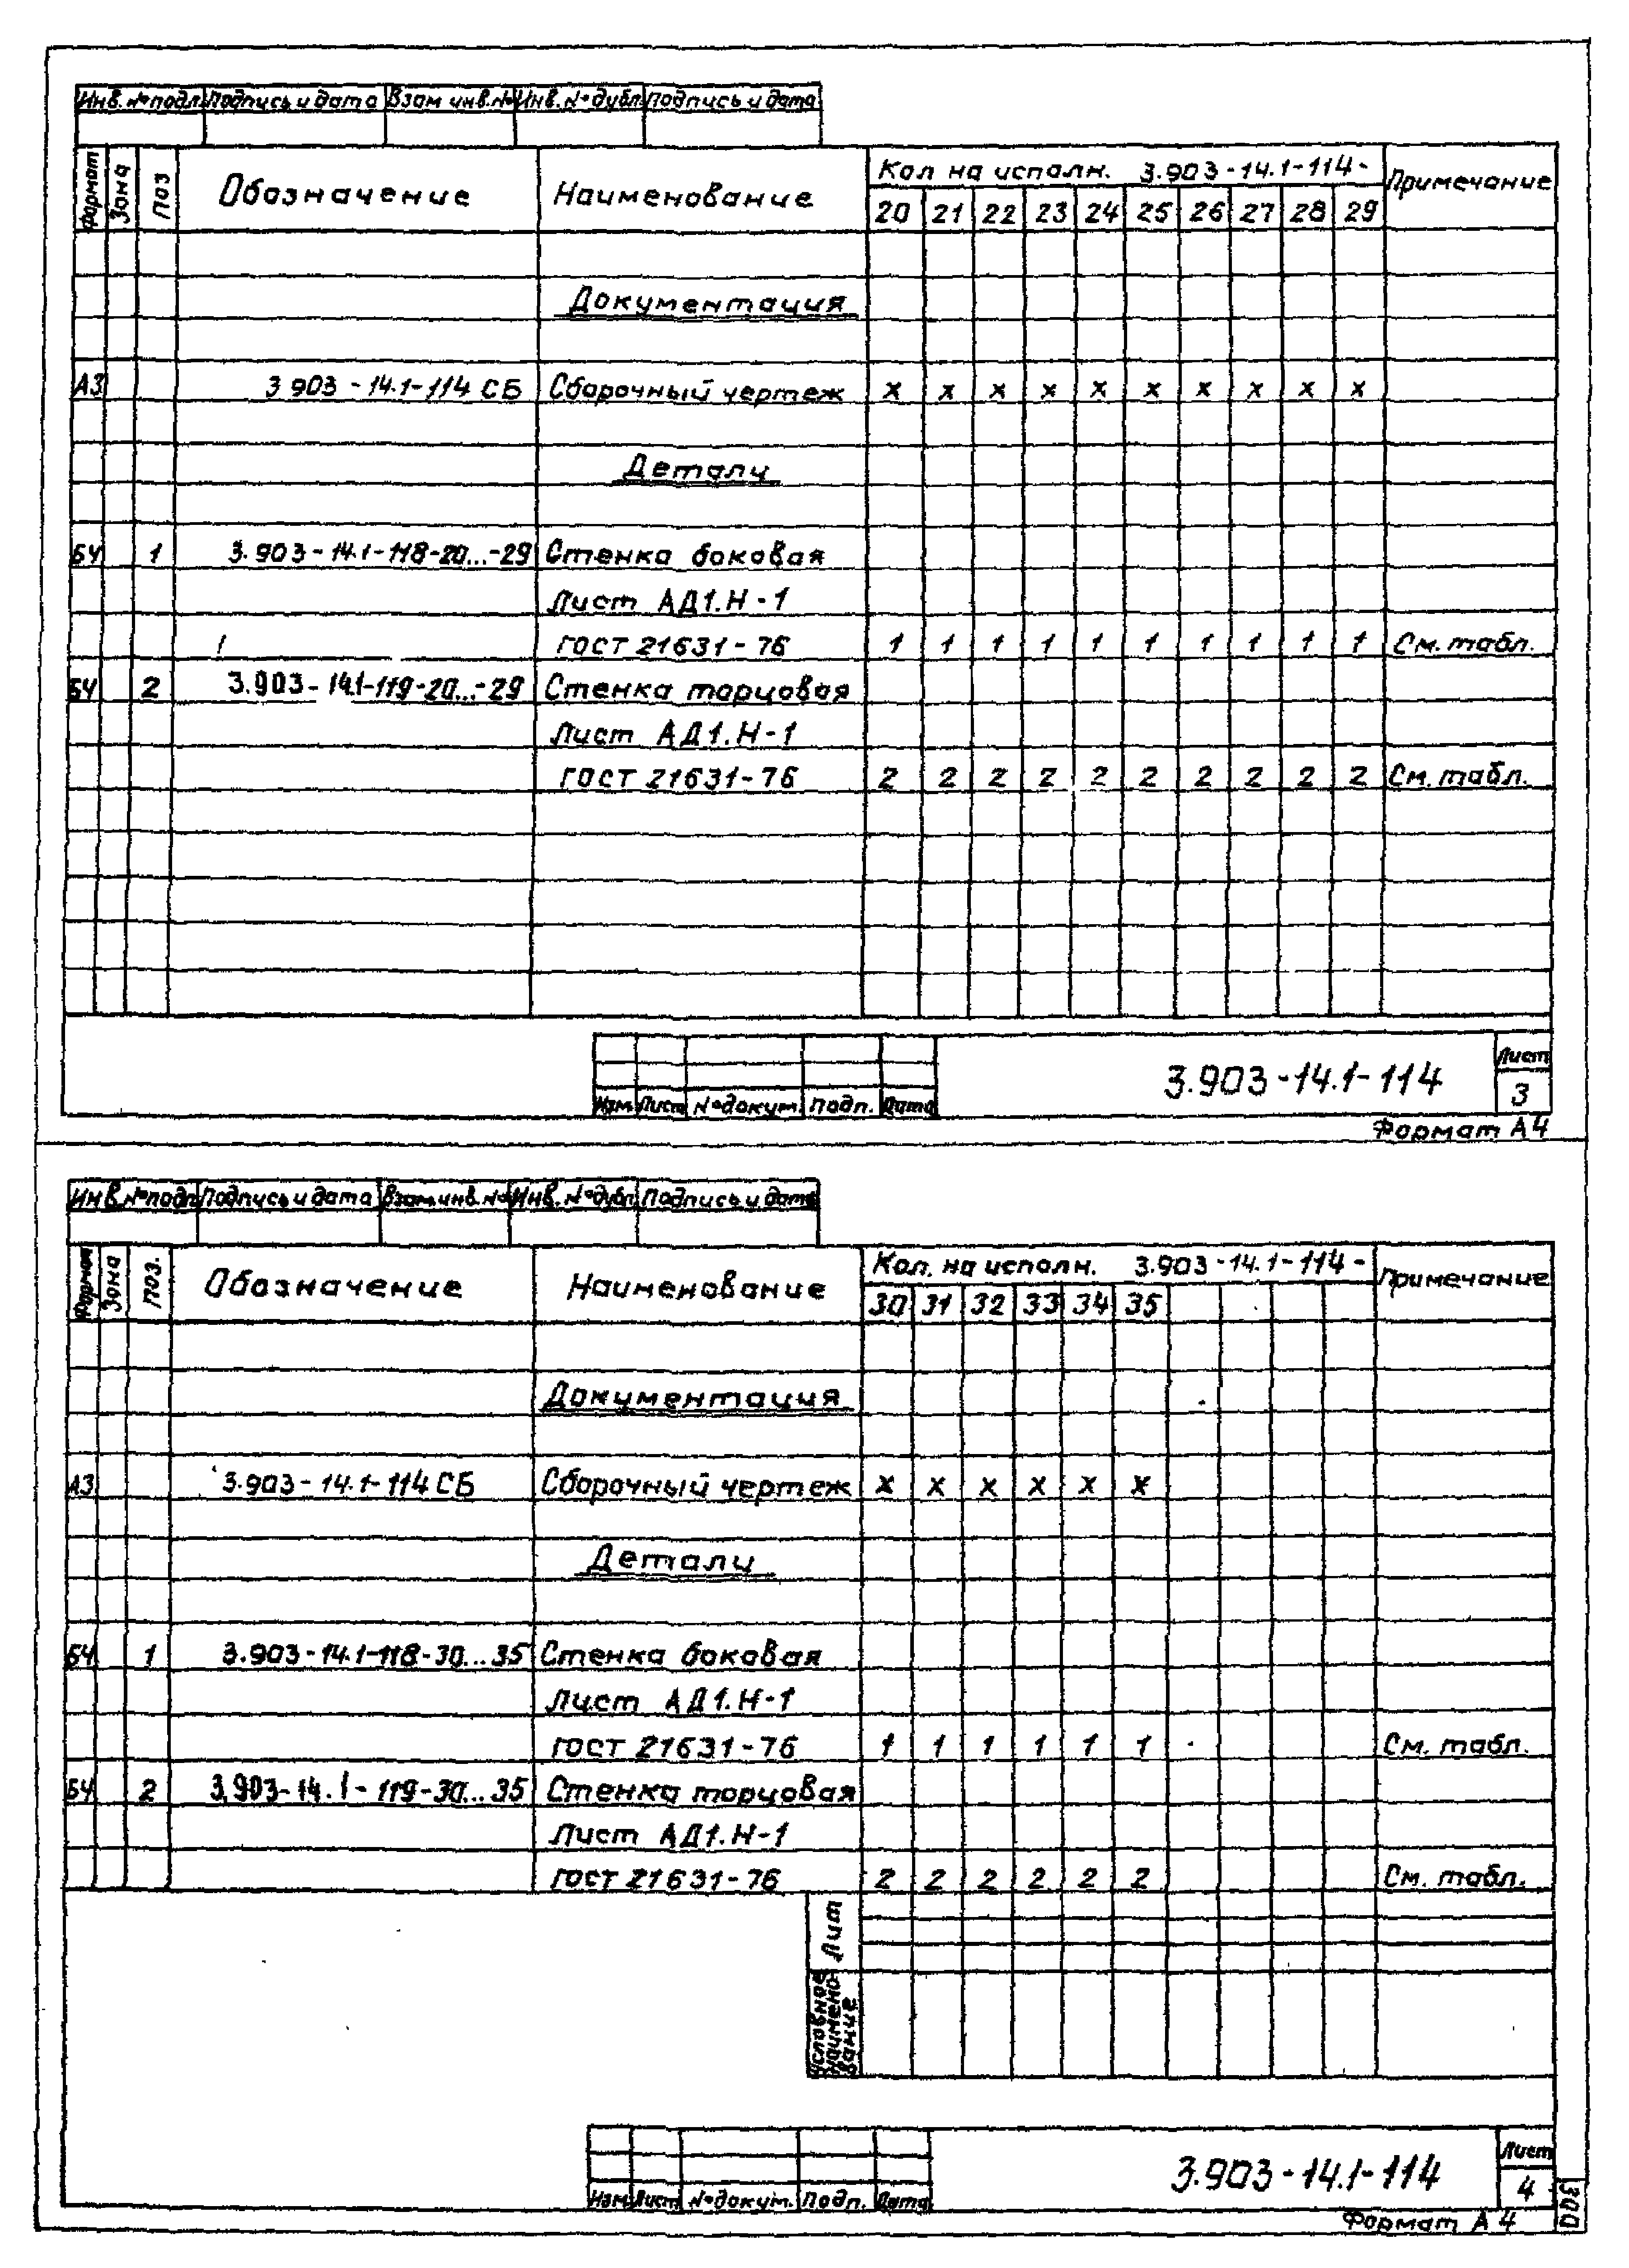 Инв. № подл. Подпись и дата Взам инв. № Инв. № дубл. Подпись и дата
Формат Зона Поз Обозначение Наименование Кол на исполн. 3.903-14.1-114- Примечание
20 21 22 23 24 25 26 27 28 29
Документация
А3 3 903-14.1-114 СБ Сборочный чертеж х х х х х х х х х х
Детали
БЧ 1 3.903-14.1-118-20...-29 Стенка боковая
Лист АД1.Н-1
ГОСТ 21631-76 1 1 1 1 1 1 1 1 1 1 См. табл.
БЧ 2 3.903-14.1-119-20...-29 Стенка торцовая
Лист АД1.Н-1
ГОСТ 21631-76 2 2 2 2 2 2 2 2 2 2 См. табл.
3.903-14.1-114 Лист
3
Изм. Лист № докум. Подп. Дата
Формат А4
Инв. № подл. Подпись и дата Взам. инв. № Инв. № дубл. Подпись и дата
Формат Зона Поз. Обозначение Наименование Кол. на исполн. 3.903-14.1-114- Примечание
30 31 32 33 34 35
Документация
А3 3.903-14.1-114 СБ Сборочный чертеж х х х х х х
Детали
БЧ 1 3.903-14.1-118-30...35 Стенка боковая
Лист АД1.Н-1
ГОСТ 21631-76 1 1 1 1 1 1 См. табл.
БЧ 2 3.903-14.1-119-30...35 Стенка торцовая
Лист АД1.Н-1
ГОСТ 21631-76 2 2 2 2 2 2 См. табл.
Лит
Условное
наимено-
вание
3.903-14.1-114 Лист
4
Изм. Лист № докум. Подп. Дата
Формат А4